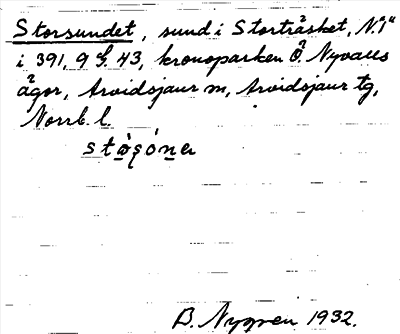 Storsundet, sund i Storträsket, N. "i"
i 391, 9 G. 43, kronoparken Ö. Nyvalls
ägor, Arvidsjaur sn, Arvidsjaur tg,
Norrb. l.
B. Nygren 1932.